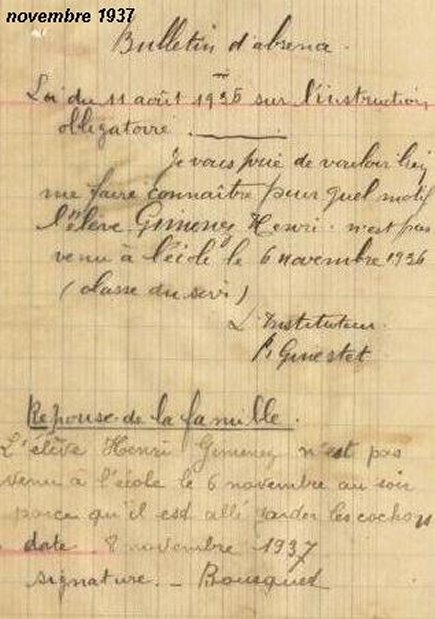 novembre 1937
Bulletin d'absence.
Loi du 11 août 1936 sur l'instruction
obligatoire.
Je vous prie de vouloir bien
me faire connaître pour quel motif
l'élève Gimenez Henri n'est pas
venu à l'école le 6 novembre 1936
(classe du soir)
L'Instituteur.
Ginestet
Réponse de la famille.
L'élève Henri Gimenez n'est pas
venu à l'école le 6 novembre au soir
parce qu'il est allé garder les cochons
date 8 novembre 1937
signature. _ Bousquet